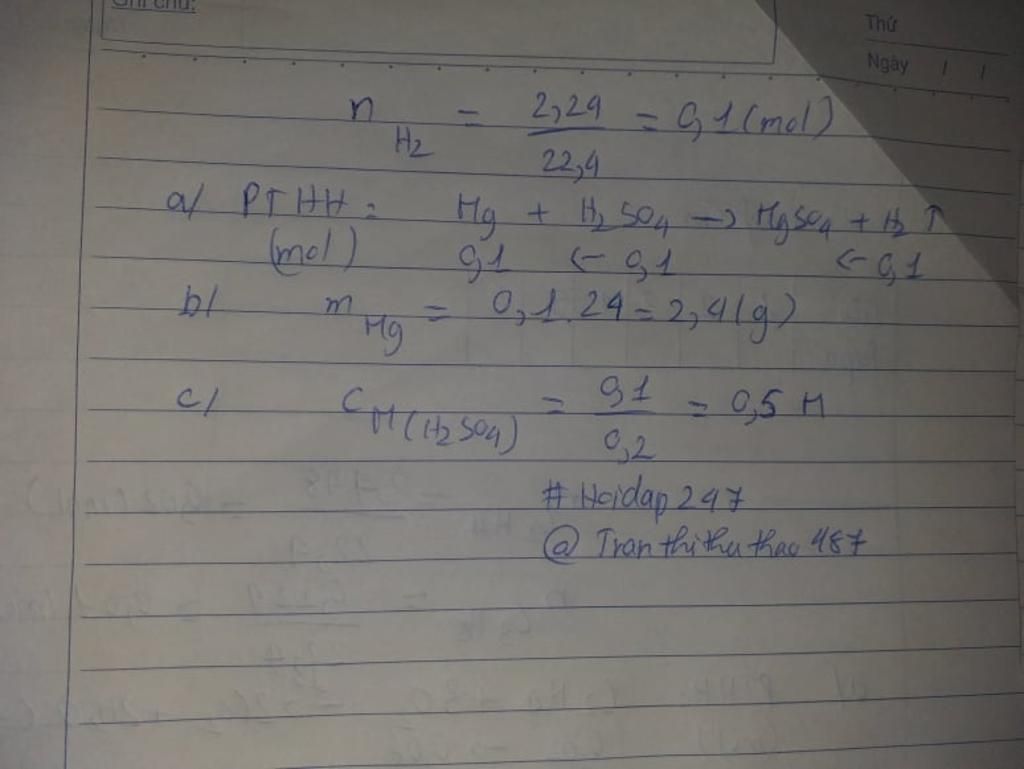 Ghi chú:
Thứ
Ngày / /
n H₂ = 2,24 / 22,4 = 0,1 (mol)
a/ PTHH: Mg + H₂SO₄ → MgSO₄ + H₂ ↑
(mol) 0,1 ← 0,1 ← 0,1
b/ m Mg = 0,1.24 = 2,4 (g)
c/ C M (H₂SO₄) = 0,1 / 0,2 = 0,5 M
# Hoidap 247
@ Tranthithuthao 487